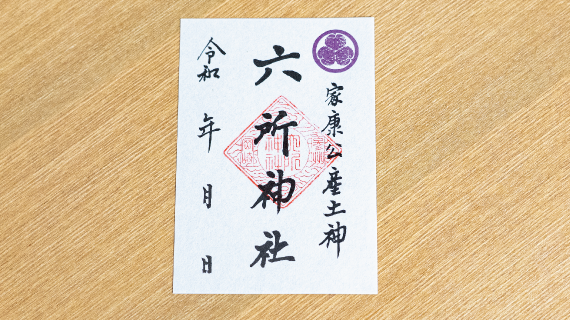 家康公産土神
六所神社
令和 年 月 日